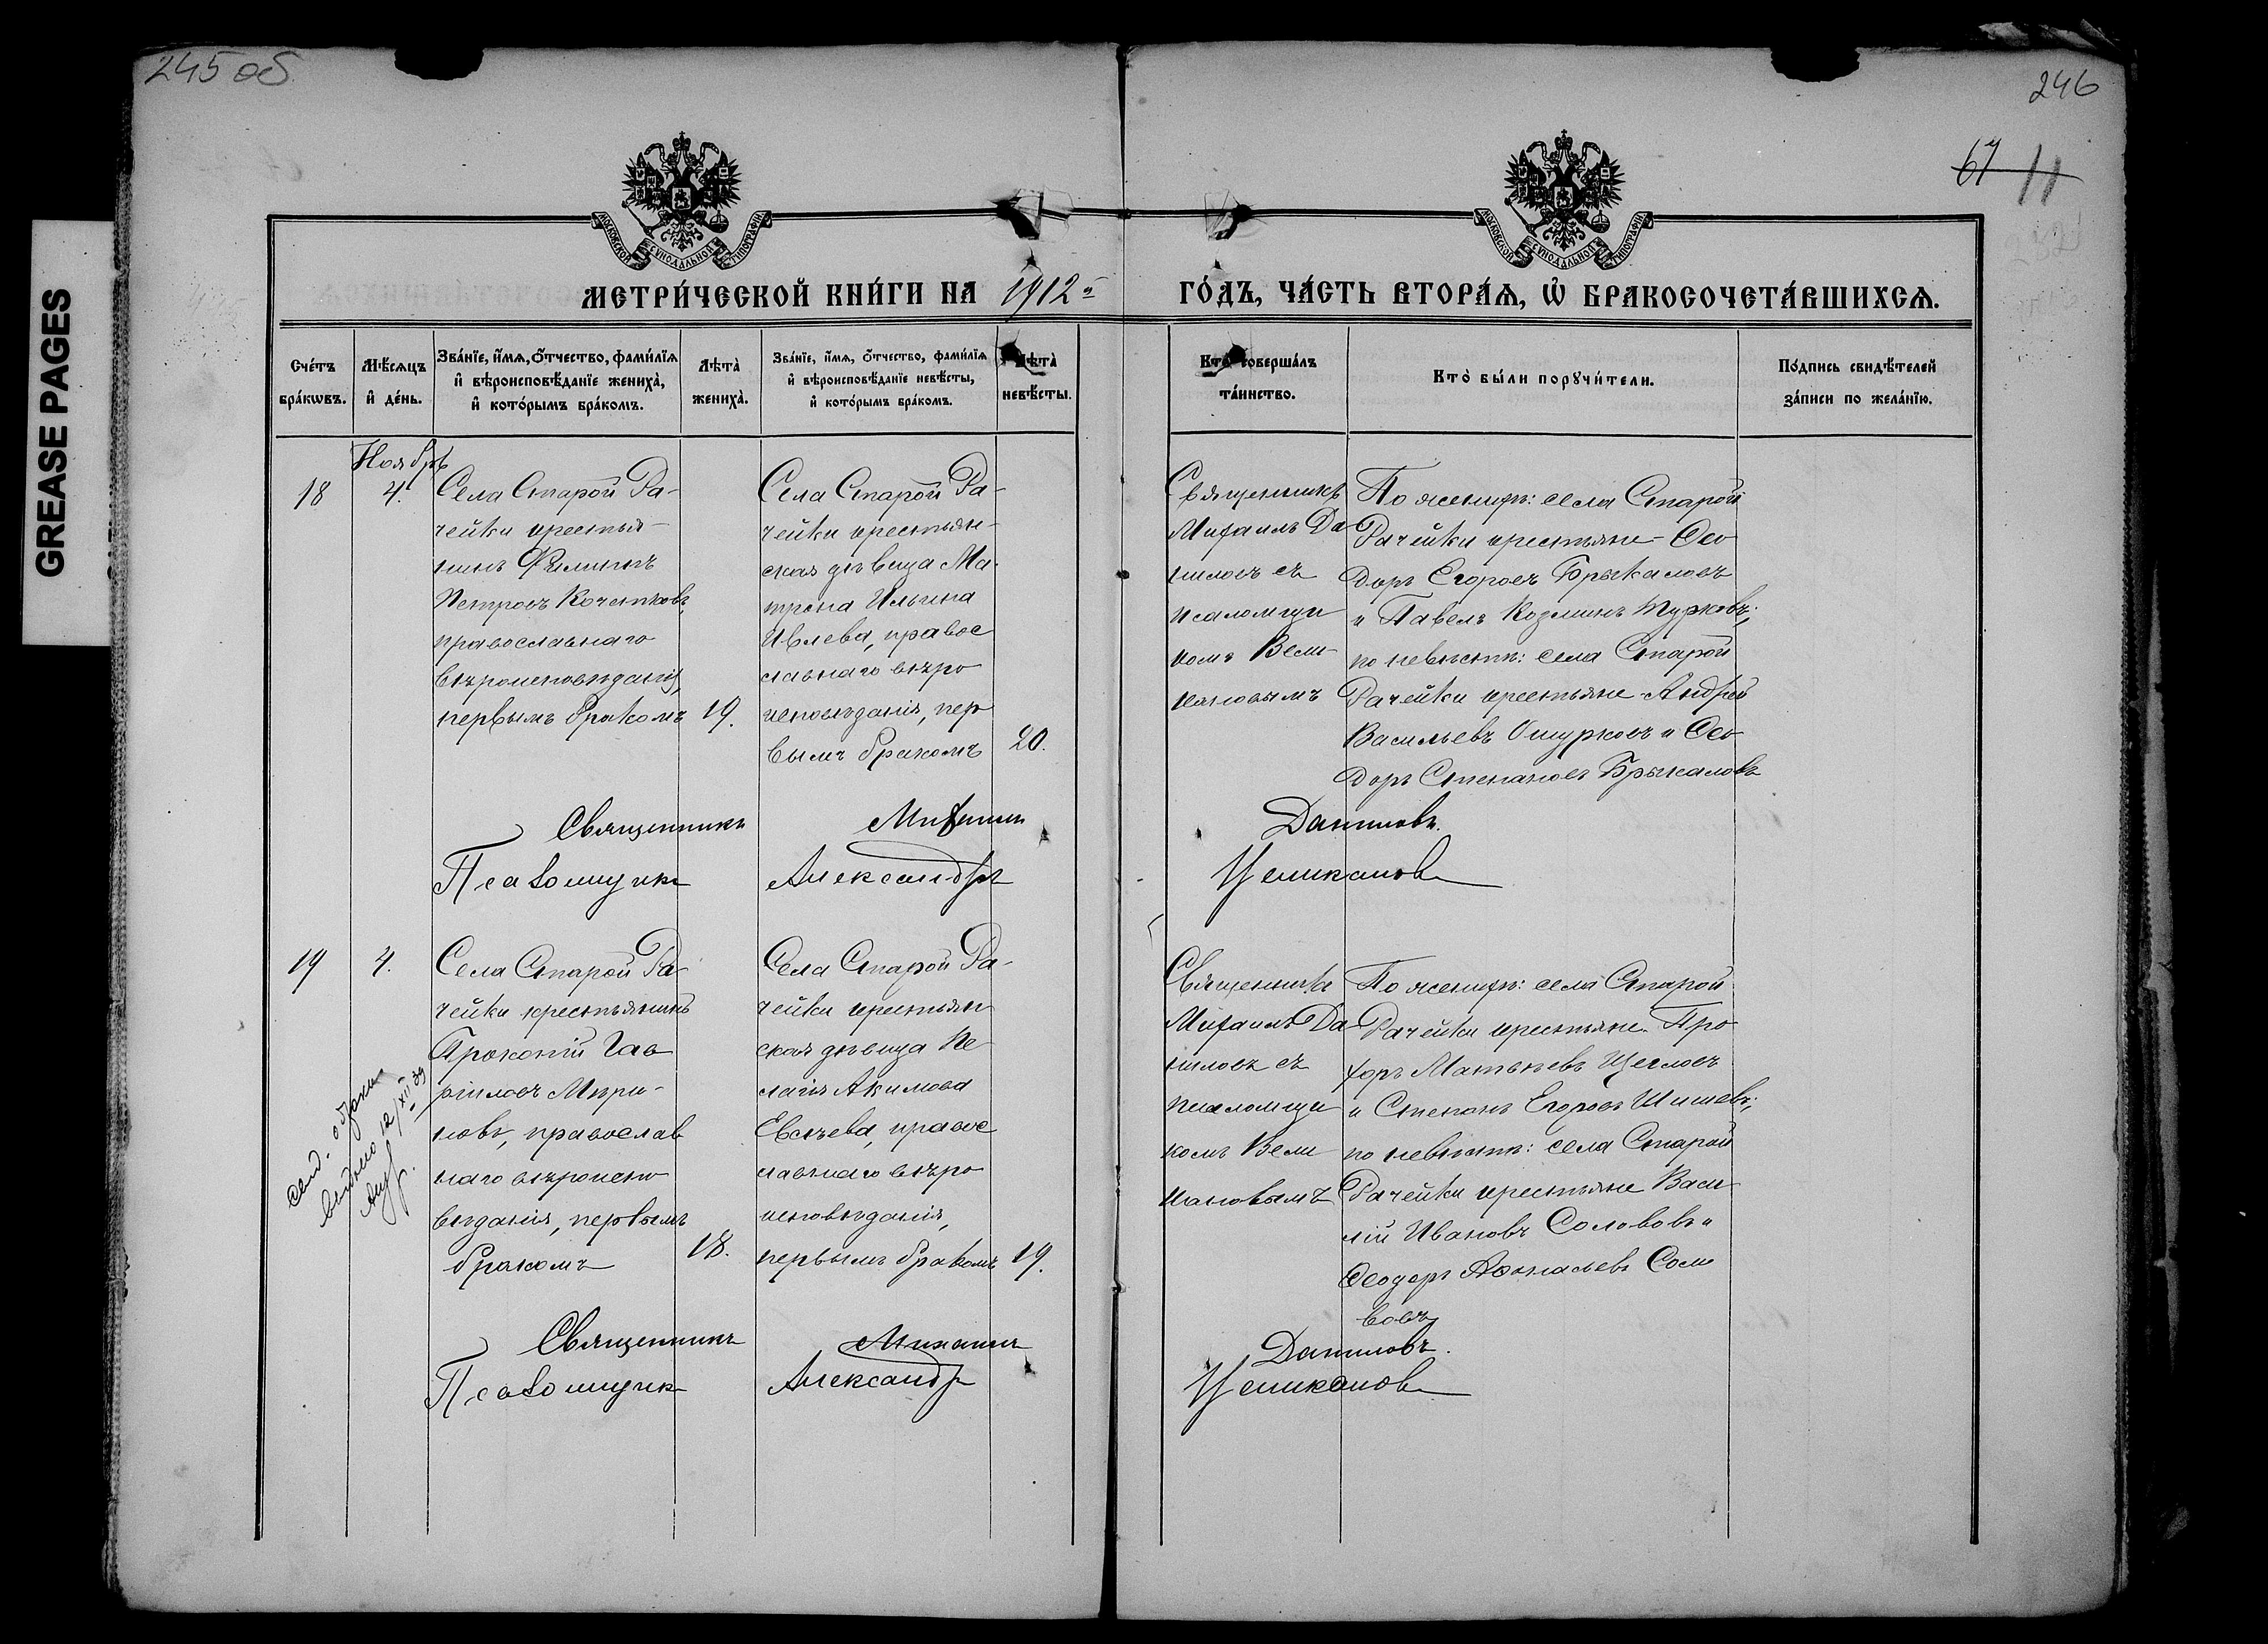 245 об
246
67 11
GREASE PAGES
МОСКОВСКОЙ СУНОДАЛЬНОЙ ТИПОГРАФІИ
МОСКОВСКОЙ СУНОДАЛЬНОЙ ТИПОГРАФІИ
МЕТРИ́ЧЕСКОЙ КНИ́ГИ НА 1912й
ГО́ДЪ, ЧА́СТЬ ВТОРА́Я, Ѡ БРАКОСОЧЕТА́ВШИХСЯ.
Сче́тъ
бра́кѡвъ.
Мѣ́сяцъ
и де́нь.
Зва́нїе, и́мя, ѻ́тчество, фами́лїя
и вѣроисповѣ́данїе жениха̀,
и кото́рымъ бра́комъ.
Лѣта̀
жениха̀.
Зва́нїе, и́мя, ѻ́тчество, фами́лїя
и вѣроисповѣ́данїе невѣ́сты,
и кото́рымъ бра́комъ.
Лѣта̀
невѣ́сты.
Кто̀ соверша́лъ
та́инство.
Кто̀ бы́ли порꙋчи́тели.
По́дпись свидѣ́телей
за́писи по жела́нїю.
18
Ноябрь
4.
Села Старой Ра-
чейки крестья-
нинъ Филиппъ
Петровъ Кочетковъ
православнаго
вѣроисповѣданія,
первымъ бракомъ
19.
Села Старой Ра-
чейки крестьян-
ская дѣвица Ма-
трона Ильина
Ивлева, правос
лавнаго вѣро
исповѣданія, пер
вымъ бракомъ
20.
Священникъ
Михаилъ Да
ниловъ съ
псаломщи
комъ Вели
кановымъ
По женихѣ: села Старой
Рачейки крестьяне- Ѳео
доръ Егоровъ Брыкаловъ
и Павелъ Козминъ Турковъ;
по невѣстѣ: села Старой
Рачейки крестьяне Андрей
Васильевъ Ошурковъ и Ѳео
доръ Степановъ Брыкаловъ
Священникъ Михаилъ Даниловъ.
Псаломщикъ Александръ Целикановъ
19
4.
Села Старой Ра-
чейки крестьянинъ
Прокопій Гав
риловъ Мири-
новъ, православ
наго вѣроиспо
вѣданія, первымъ
бракомъ
18.
Села Старой Ра-
чейки крестьян
ская дѣвица Пе
лагія Акимова
Евсѣева, правос
лавнаго вѣро
исповѣданія,
первымъ бракомъ
19.
Священникъ
Михаилъ Да
ниловъ съ
псаломщи
комъ Вели
кановымъ
По женихѣ: села Старой
Рачейки крестьяне Про
хоръ Матвѣевъ Щегловъ
и Степанъ Егоровъ Шишевъ;
по невѣстѣ: села Старой
Рачейки крестьяне Васи
лій Ивановъ Соловов и
Ѳеодоръ Соло
вовъ
свид. о браке
выдано 12/XII 39
Священникъ Михаилъ Даниловъ.
Псаломщикъ Александръ Целикановъ